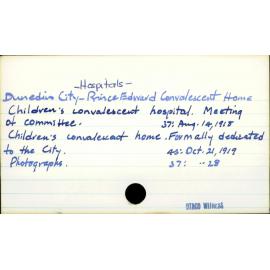 -Hospitals-
Dunedin City-Prince Edward Convalescent Home
Children's convalescent hospital. Meeting
of committee. 37: Aug. 14, 1918
Children's convalescent home. Formally dedicated
to the City. 45: Oct. 21, 1919
Photographs. 37: " 28
OTAGO WITNESS